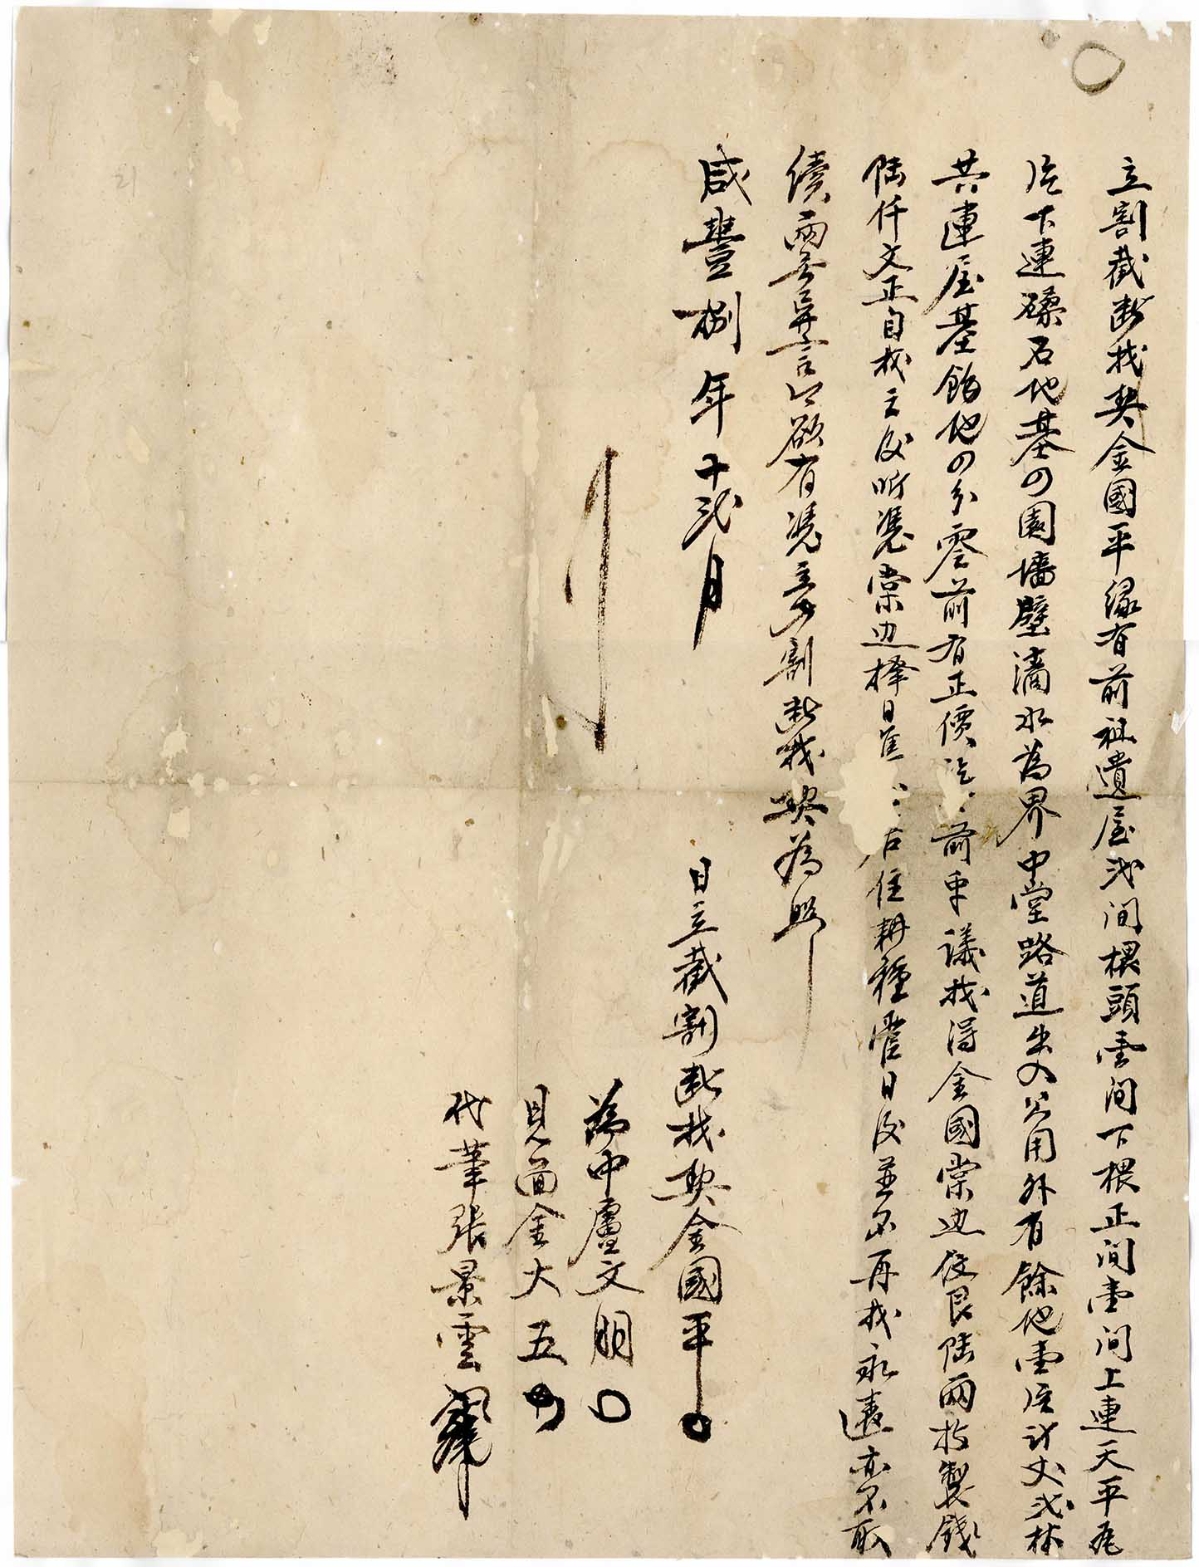 立割截断找契金國平緣有前祖遺屋弍间楻頭壹间下楻正间壹间上連天平瓦
片下連磉石地基四園墻壁滴水為界中堂路道出入公用外有餘地壹片計丈弍秫
共連屋基餘地四分零前有正價訖前平議找得金國棠边找艮陆兩扵製錢
陆仟文正自找之後听凭棠边擇日居住耕種管日後並不再找永遠亦不取
續兩各無異言今欲有凴立此割断找契為照
咸豐捌年十弍月
日立截割断找契金國平
為中盧文明
見面金大五
代筆張景雲